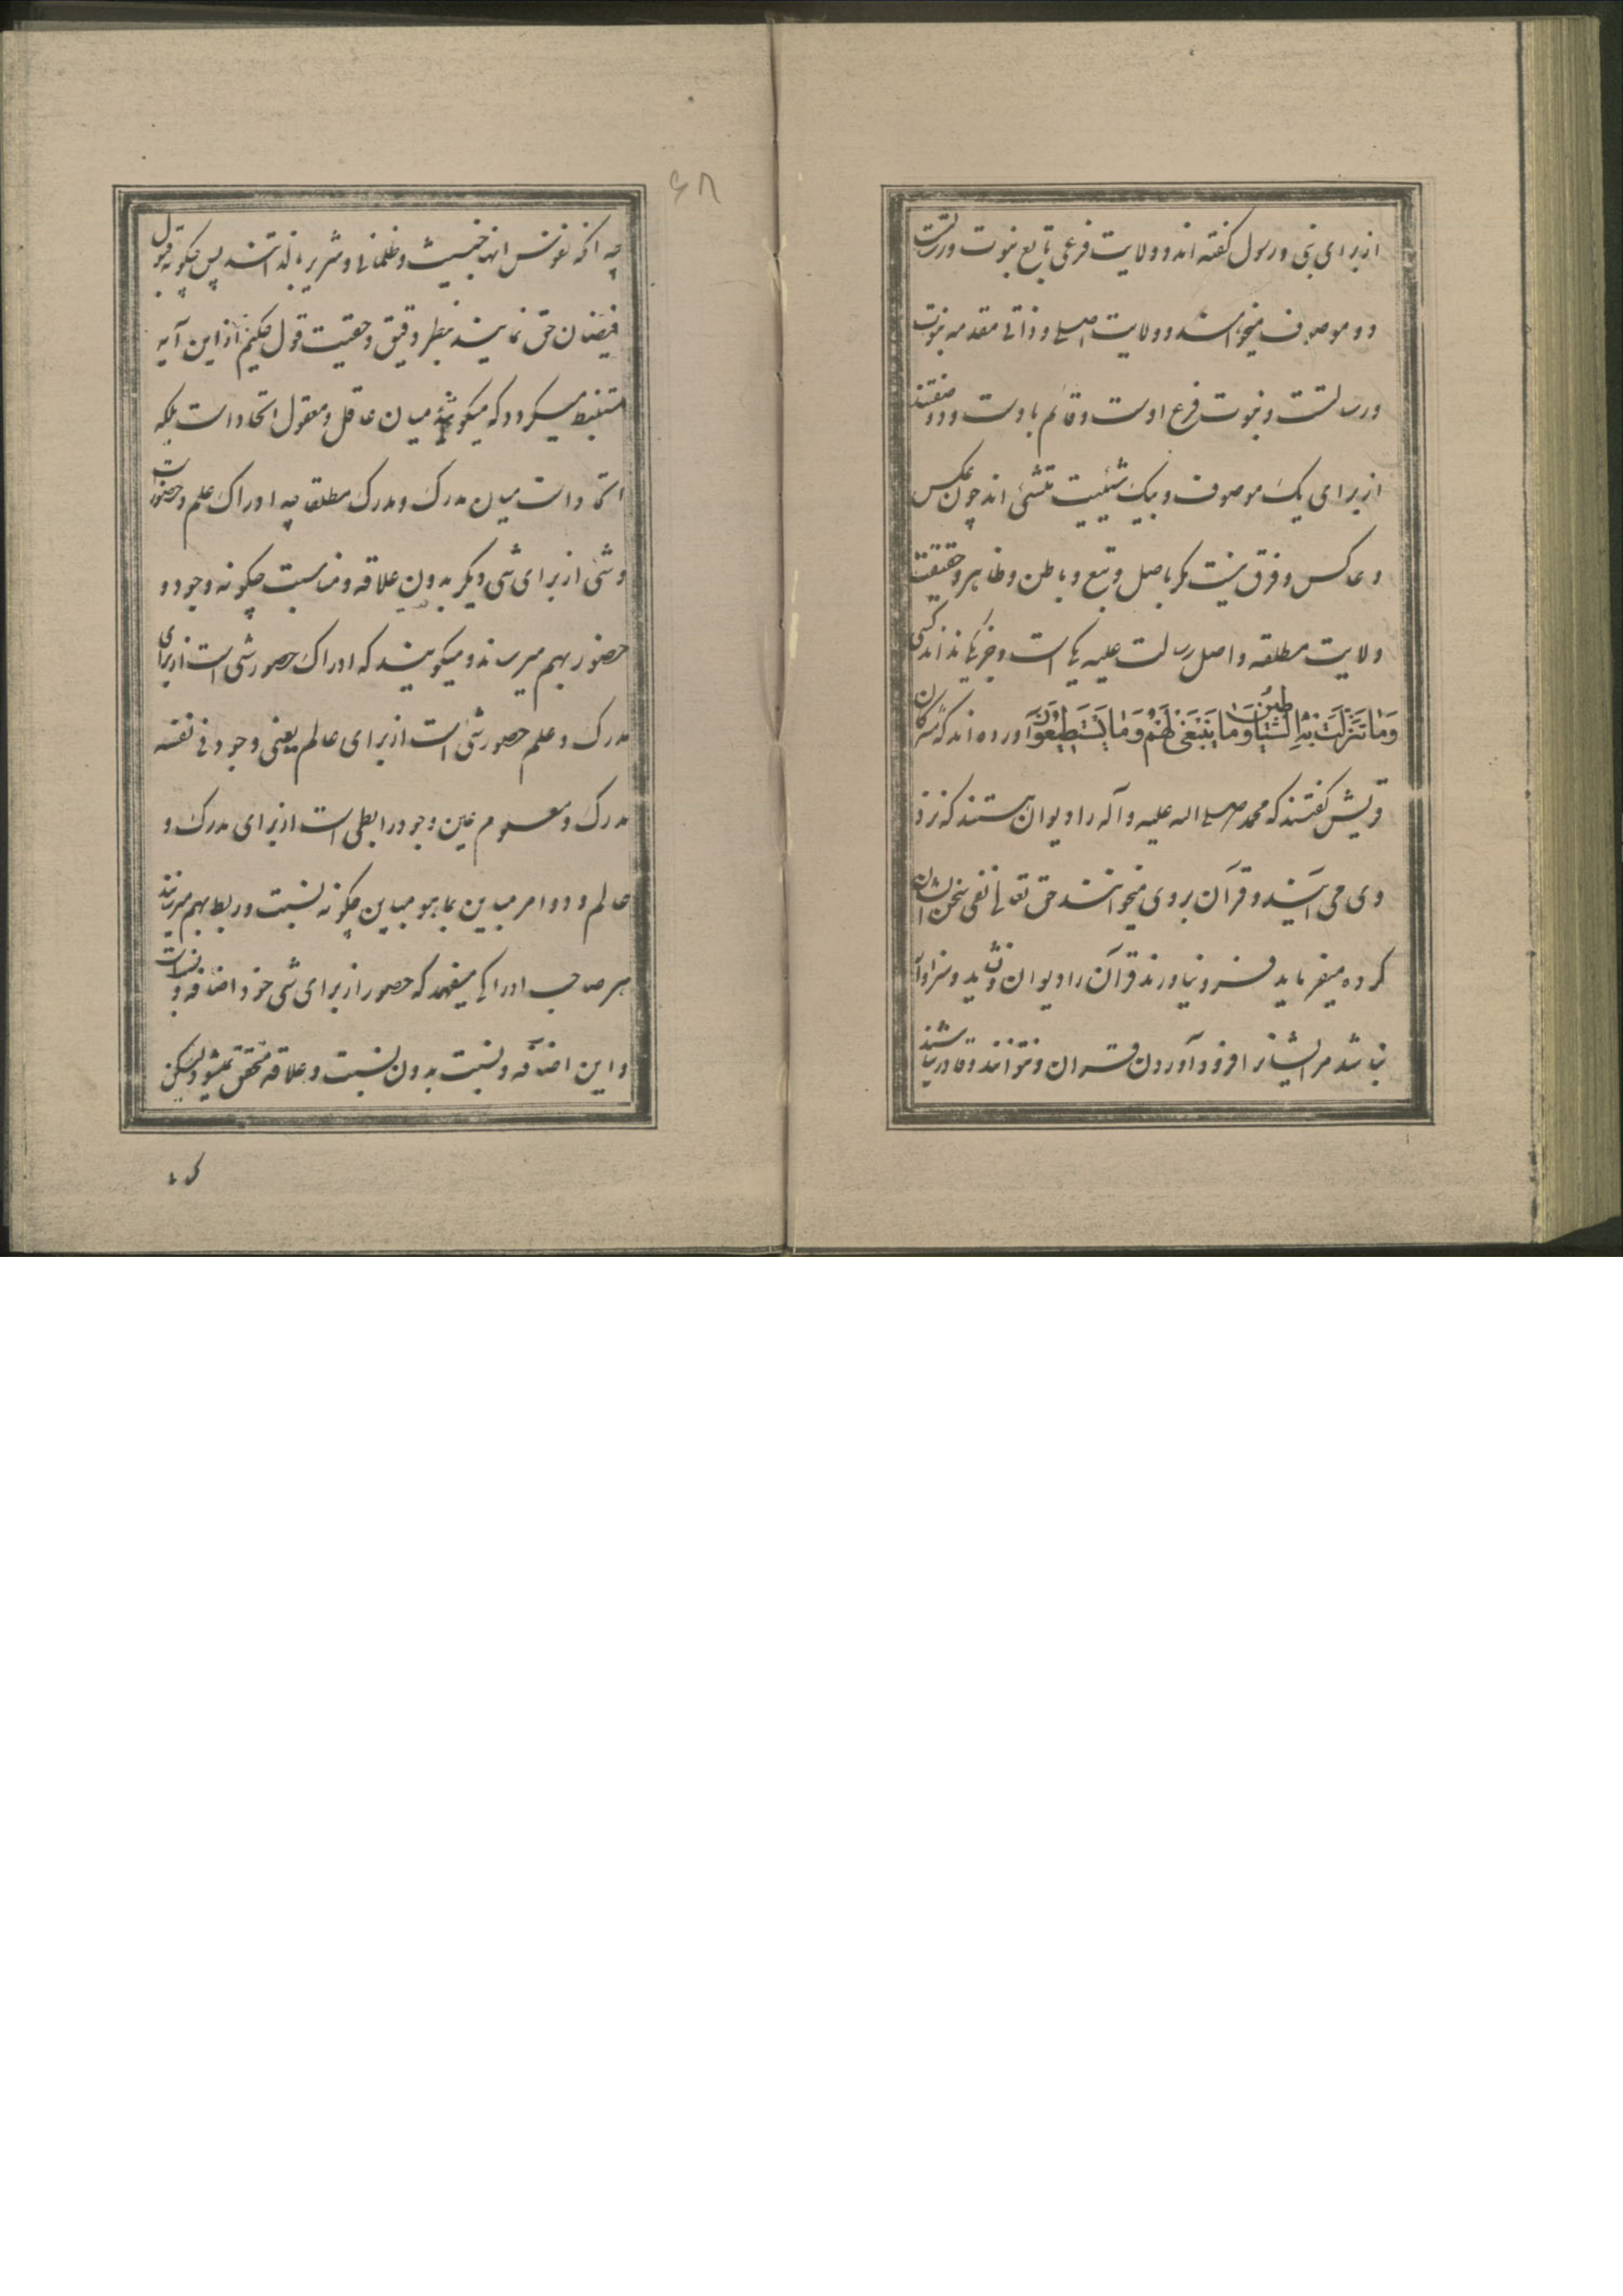 ازبرای نبی و رسول گفته اند و ولایت فرعی تابع نبوت و رسالت
دو موصوف میخواهند و ولایت اصلی و ذاتی مقدمه نبوت
و رسالتست و نبوت فرع اوست و قائم باوست و دو صفتند
ازبرای یک موصوف و بیک شیئیت متشئی اند چون عکس
و عاکس و فرق نیست مگر باصل و تبع و باطن و ظاهر و حقیقت
ولایت مطلقه و اصل رسالت علیه یکی است و جز یکی نداند کسی
وَمَا تَنَزَّلَتْ بِهِ الشَّيَاطِينُ وَمَا يَنْبَغِي لَهُمْ وَمَا يَسْتَطِيعُونَ آورده اند که مشرکان
قریش گفتند که محمد صلی الله علیه و آله را دیوان هستند که نزد
وی می آیند و قرآن بر وی میخوانند حق تعالی نفی سخن ایشان
کرده میفرماید فرو نیاورند قرآن را دیوان و نشاید و سزاوار
نباشد مر ایشانرا فرود آوردن قران و نتوانند و قادر نباشند
۶۸
چه آنکه نفوس آنها خبیث و ظلمانی و شریر بالذاتند پس چگونه قبول
فیضان حق نمایند بنظر دقیق و حقیت قول حکیم ازین آیه
مستنبط میگردد که میگویند میان عاقل و معقول اتحاد است بلکه
اتحاد است میان مدرک و مدرک مطلقا چه ادراک علم و حضور است
و شئ ازبرای شی دیگر بدون علاقه و مناسبت چگونه وجود و
حضور بهم میرساند و میگویند که ادراک حضور شی است ازبرای
مدرک و علم حضور شئ است ازبرای عالم یعنی وجود فی نفسه
مدرک و معلوم عین وجود رابطی است ازبرای مدرک و
عالم و دو امر مباین بما هو مباین چگونه نسبت و ربط بهم میرسانند
هر صاحب ادراکی میفهمد که حضور ازبرای شی خود اضافه و نسبت است
و این اضافه و نسبت بدون نسبت و علاقه متحقق نمیشود لیکن